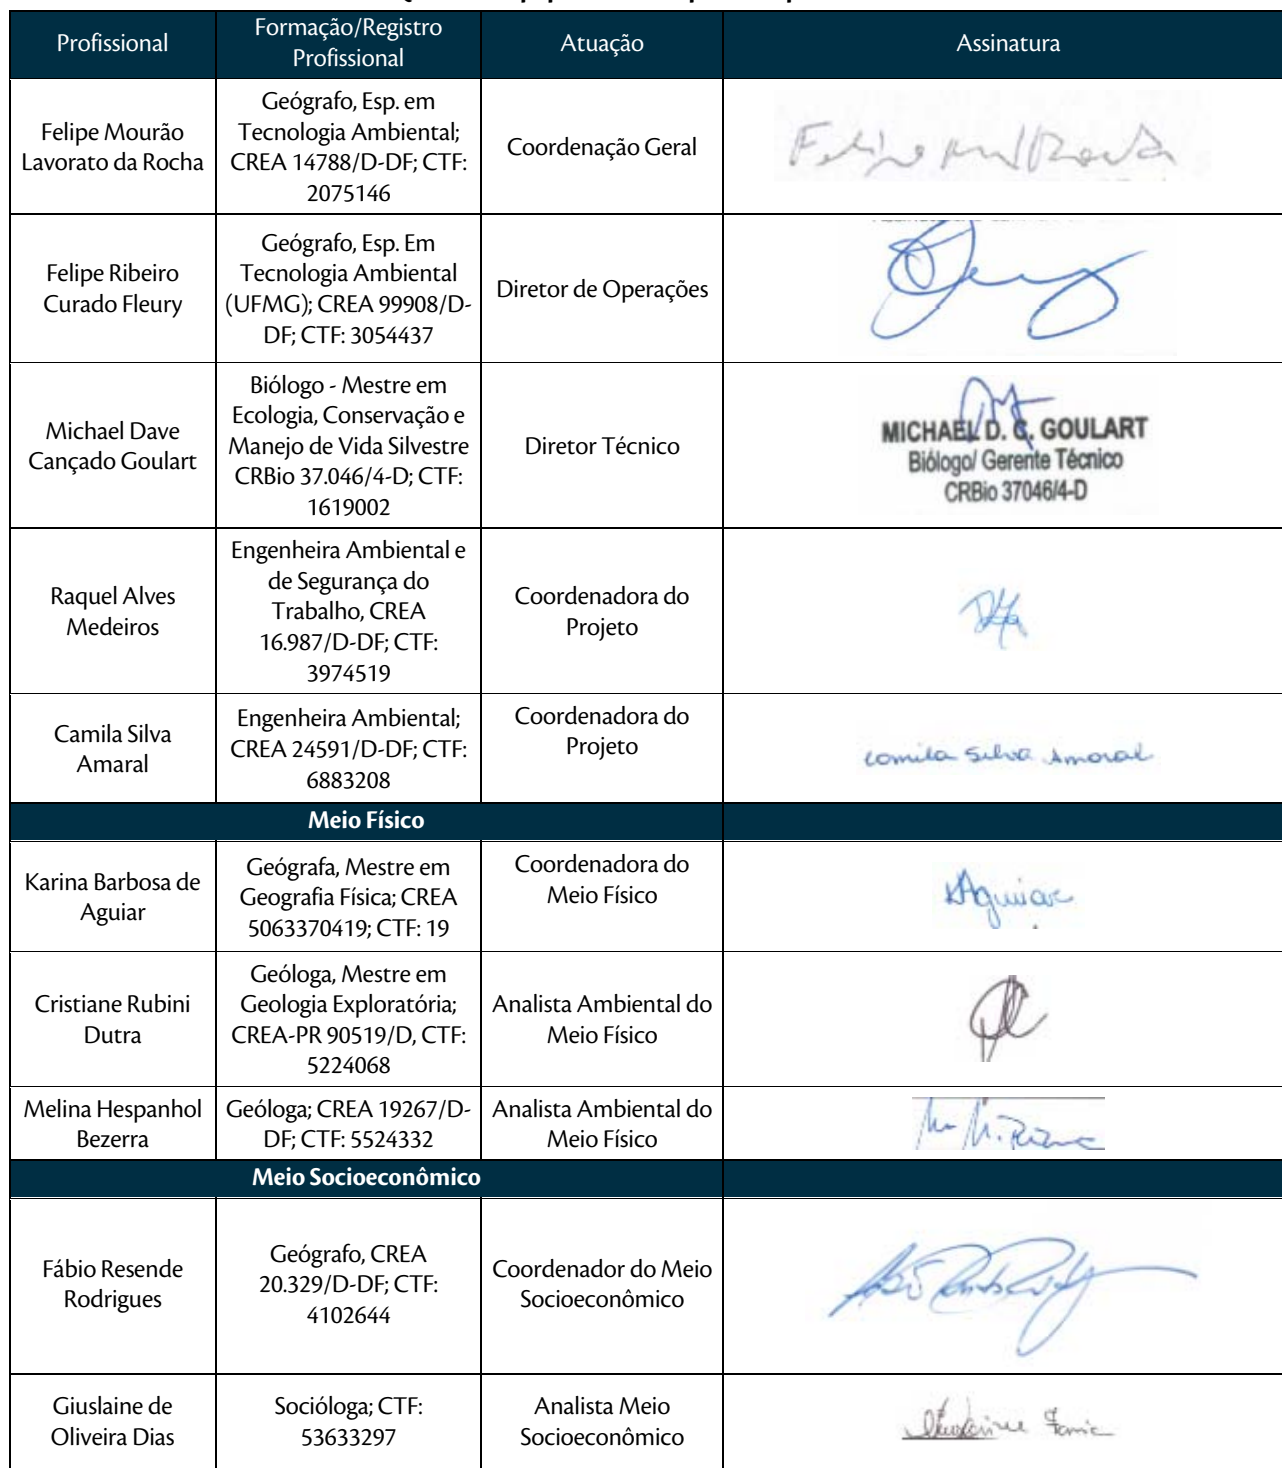 Profissional
Formação/Registro
Profissional
Atuação
Assinatura
Felipe Mourão
Lavorato da Rocha
Geógrafo, Esp. em
Tecnologia Ambiental;
CREA 14788/D-DF; CTF:
2075146
Coordenação Geral
Felipe Ribeiro
Curado Fleury
Geógrafo, Esp. Em
Tecnologia Ambiental
(UFMG); CREA 99908/D-
DF; CTF: 3054437
Diretor de Operações
Michael Dave
Cançado Goulart
Biólogo - Mestre em
Ecologia, Conservação e
Manejo de Vida Silvestre
CRBio 37.046/4-D; CTF:
1619002
Diretor Técnico
MICHAEL D. C. GOULART
Biólogo/ Gerente Técnico
CRBio 37046/4-D
Raquel Alves
Medeiros
Engenheira Ambiental e
de Segurança do
Trabalho, CREA
16.987/D-DF; CTF:
3974519
Coordenadora do
Projeto
Camila Silva
Amaral
Engenheira Ambiental;
CREA 24591/D-DF; CTF:
6883208
Coordenadora do
Projeto
Camila Silva Amaral
Meio Físico
Karina Barbosa de
Aguiar
Geógrafa, Mestre em
Geografia Física; CREA
5063370419; CTF: 19
Coordenadora do
Meio Físico
KAguiar
Cristiane Rubini
Dutra
Geóloga, Mestre em
Geologia Exploratória;
CREA-PR 90519/D, CTF:
5224068
Analista Ambiental do
Meio Físico
Melina Hespanhol
Bezerra
Geóloga; CREA 19267/D-
DF; CTF: 5524332
Analista Ambiental do
Meio Físico
Meio Socioeconômico
Fábio Resende
Rodrigues
Geógrafo, CREA
20.329/D-DF; CTF:
4102644
Coordenador do Meio
Socioeconômico
Giuslaine de
Oliveira Dias
Socióloga; CTF:
53633297
Analista Meio
Socioeconômico